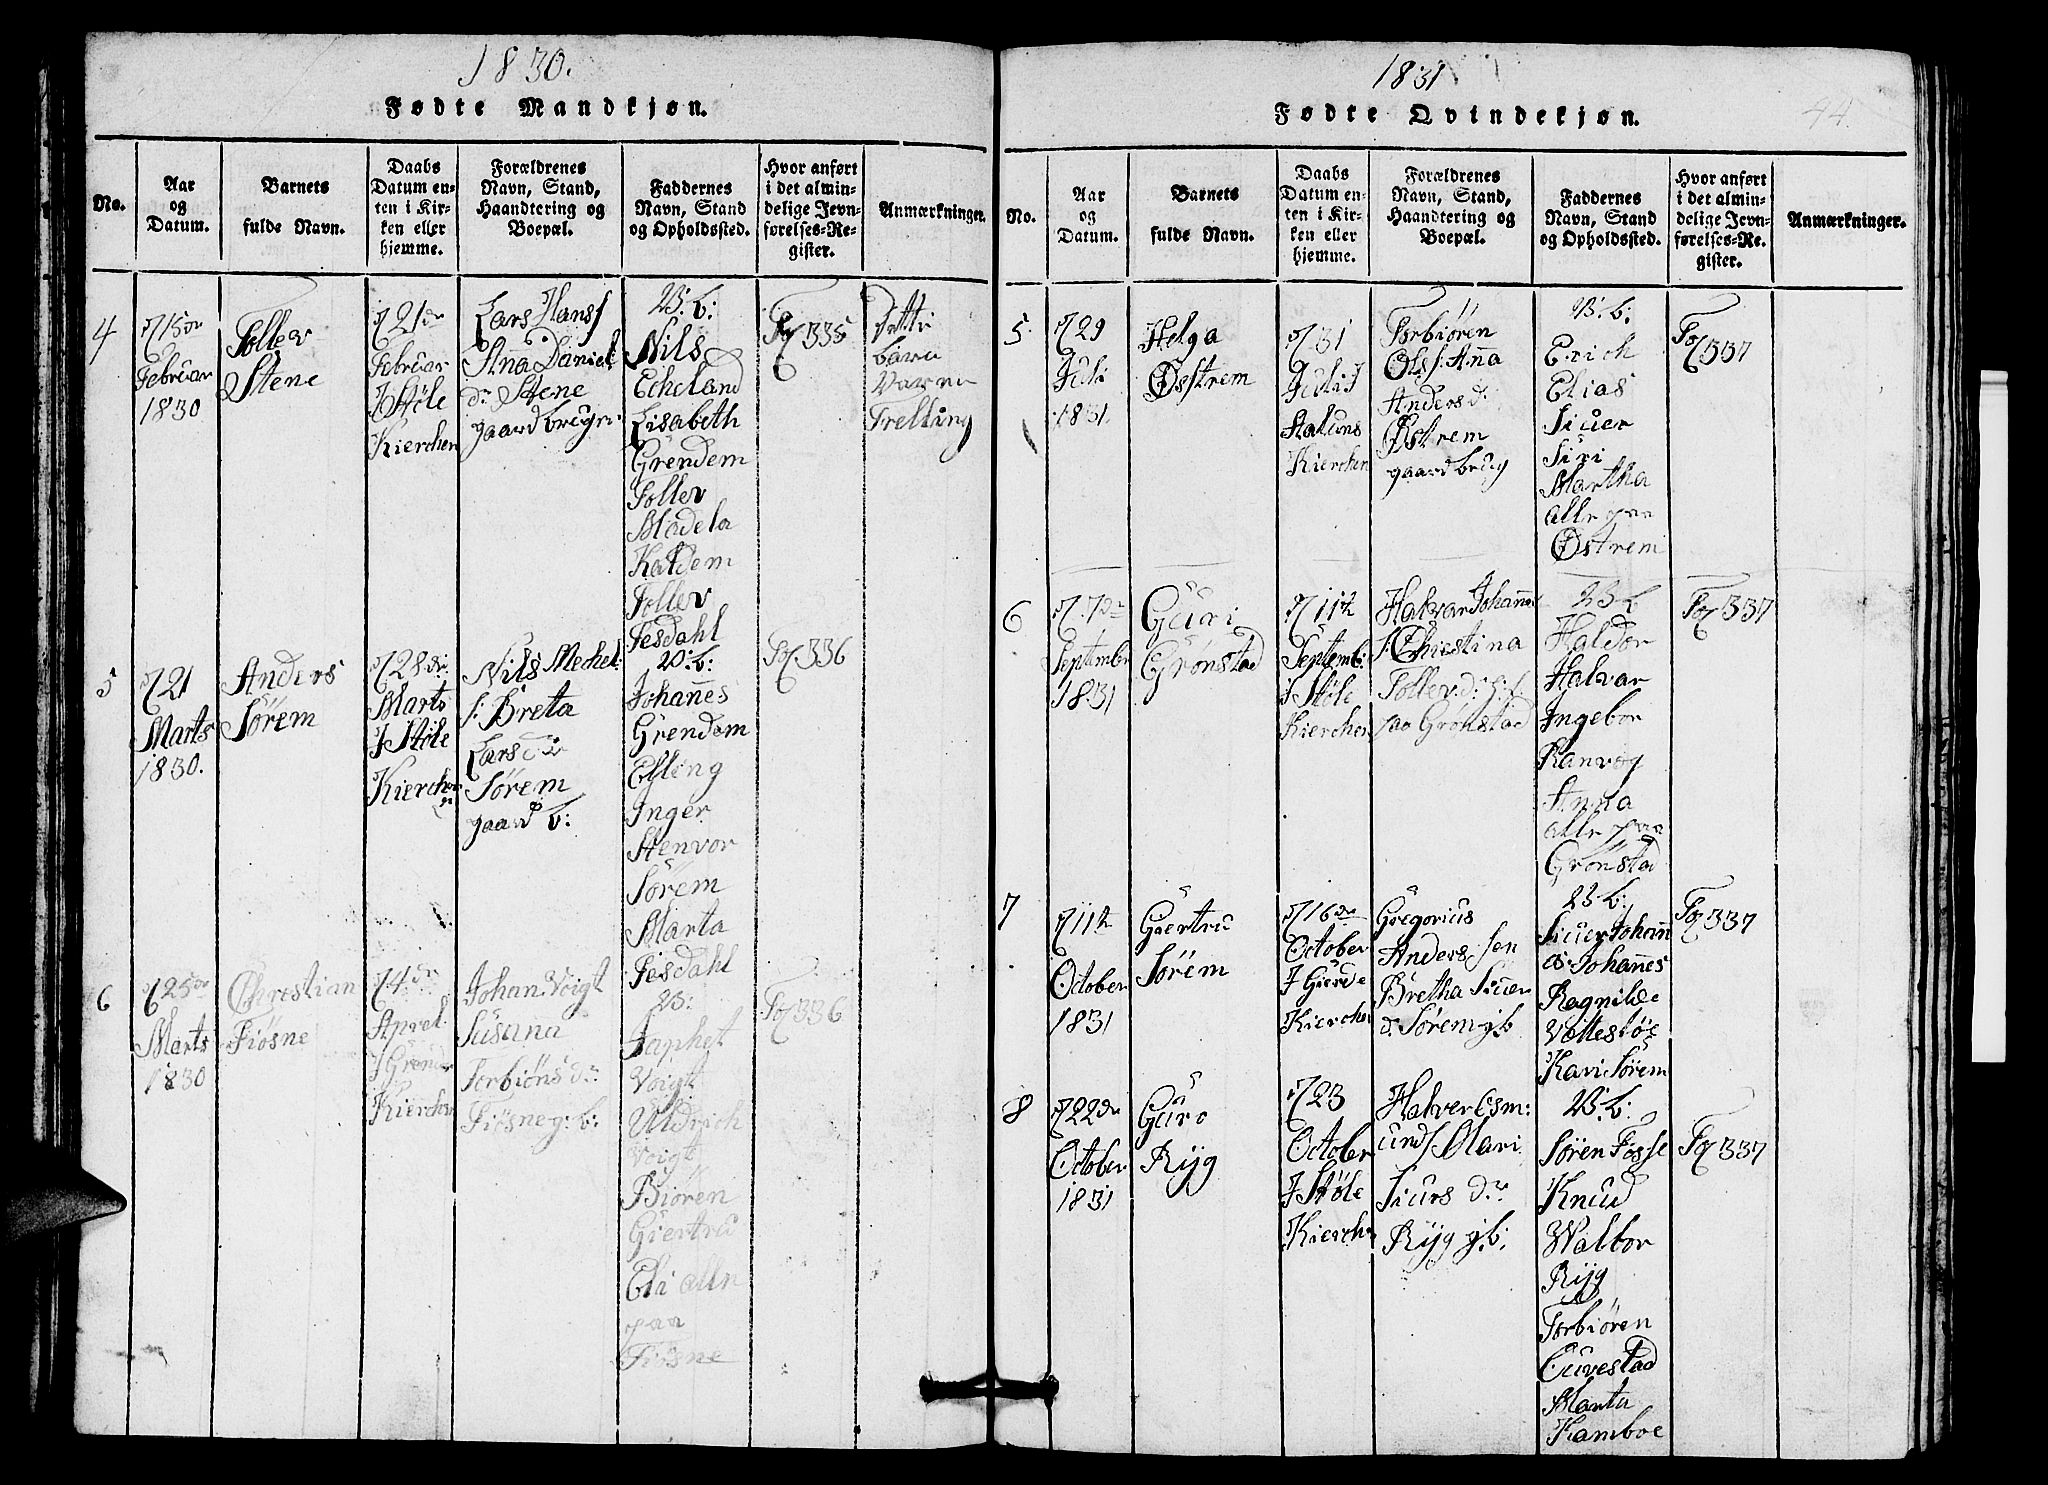 1830.
Fødte Mandkjøn.
No.
Aar
og
Datum.
Barnets
fulde Navn.
Daabs
Datum en-
ten i Kir-
ken eller
hjemme.
Forældrenes
Navn, Stand,
Haandtering og
Boepæl.
Faddernes
Navn, Stand
og Opholdssted.
Hvor anført
i det almin-
delige Jevn-
førelses-Re-
gister.
Anmærkninger.
4
15de
Februar
1830
Tollev
Stene
21de
Februar
I Støle
Kierchen
Lars Hans f
Ana Daniel
dr Stene
gaardbrugr
V: b:
Nils
Echeland
Lisabeth
Grendem
Tollev
Madela
Kaldem
Tollev
Tesdahl
335
Dette
baren
Varen
Trelling
5
21
Marts
1830.
Anders
Sörem
28de
Marts
I Støle
Kierchen
Nils Mechel
s: Breta
Lars dr
Sörem
gaard b:
V: b:
Johannes
Grendem
Elling
Inger
Stenvor
Sörem
Marta
Tesdahl
336
6
25de
Marts
1830
Christian
Fiösne
4de
Aprel
I Grinde
Kierchen
Johan Voigt
Susana
Torbiöns dr
Fiösne g: b:
V:
Japhet
Voigt
Uldrich
Voigt
Biören
Giertru
Eli alle
paa
Fiösne
336
1831
Fødte Qvindekjøn.
44
No.
Aar
og
Datum.
Barnets
fulde Navn.
Daabs
Datum en-
ten i Kir-
ken eller
hjemme.
Forældrenes
Navn, Stand,
Haandtering og
Boepæl.
Faddernes
Navn, Stand
og Opholdssted.
Hvor anført
i det almin-
delige Jevn-
førelses-Re-
gister.
Anmærkninger.
5
29
Juli
1831.
Helga
Østrem
31
Juli I
Kierchen
Torbiören
Ols f: Anna
Anders d:
Østrem
gaardbrug
V: b:
Erich
Elias
Siuer
Siri
Martha
alle paa
Østrem
337
6
7de
Septembr
1831
Guri
Grönstad
11te
Septemb:
I Støle
Kierchen
Halvar Johannes
s: Christina
Tollev d:
paa Grönstad
V: b:
Haldor
Halvar
Ingebor
Ranvog
Anna
alle paa
Grönstad
337
7
11te
October
1831
Giertru
Sörem
16de
October
I Gierde
Kierchen
Gregorius
Anders sen
Bretha Siuer
dr Sörem g: b
V: b:
Siuer Johann
Johannes
Ragnilde
Kari Sörem
337
8
22de
October
1831
Guro
Ryg
23
October
I Støle
Kierchen
Halver Osm:
unds Mari
Siurs dr
Ryg g: b:
V: b:
Sören Fosse
Knud
Walbor
Ryg
Torbiören
Marta
Kamboe
337